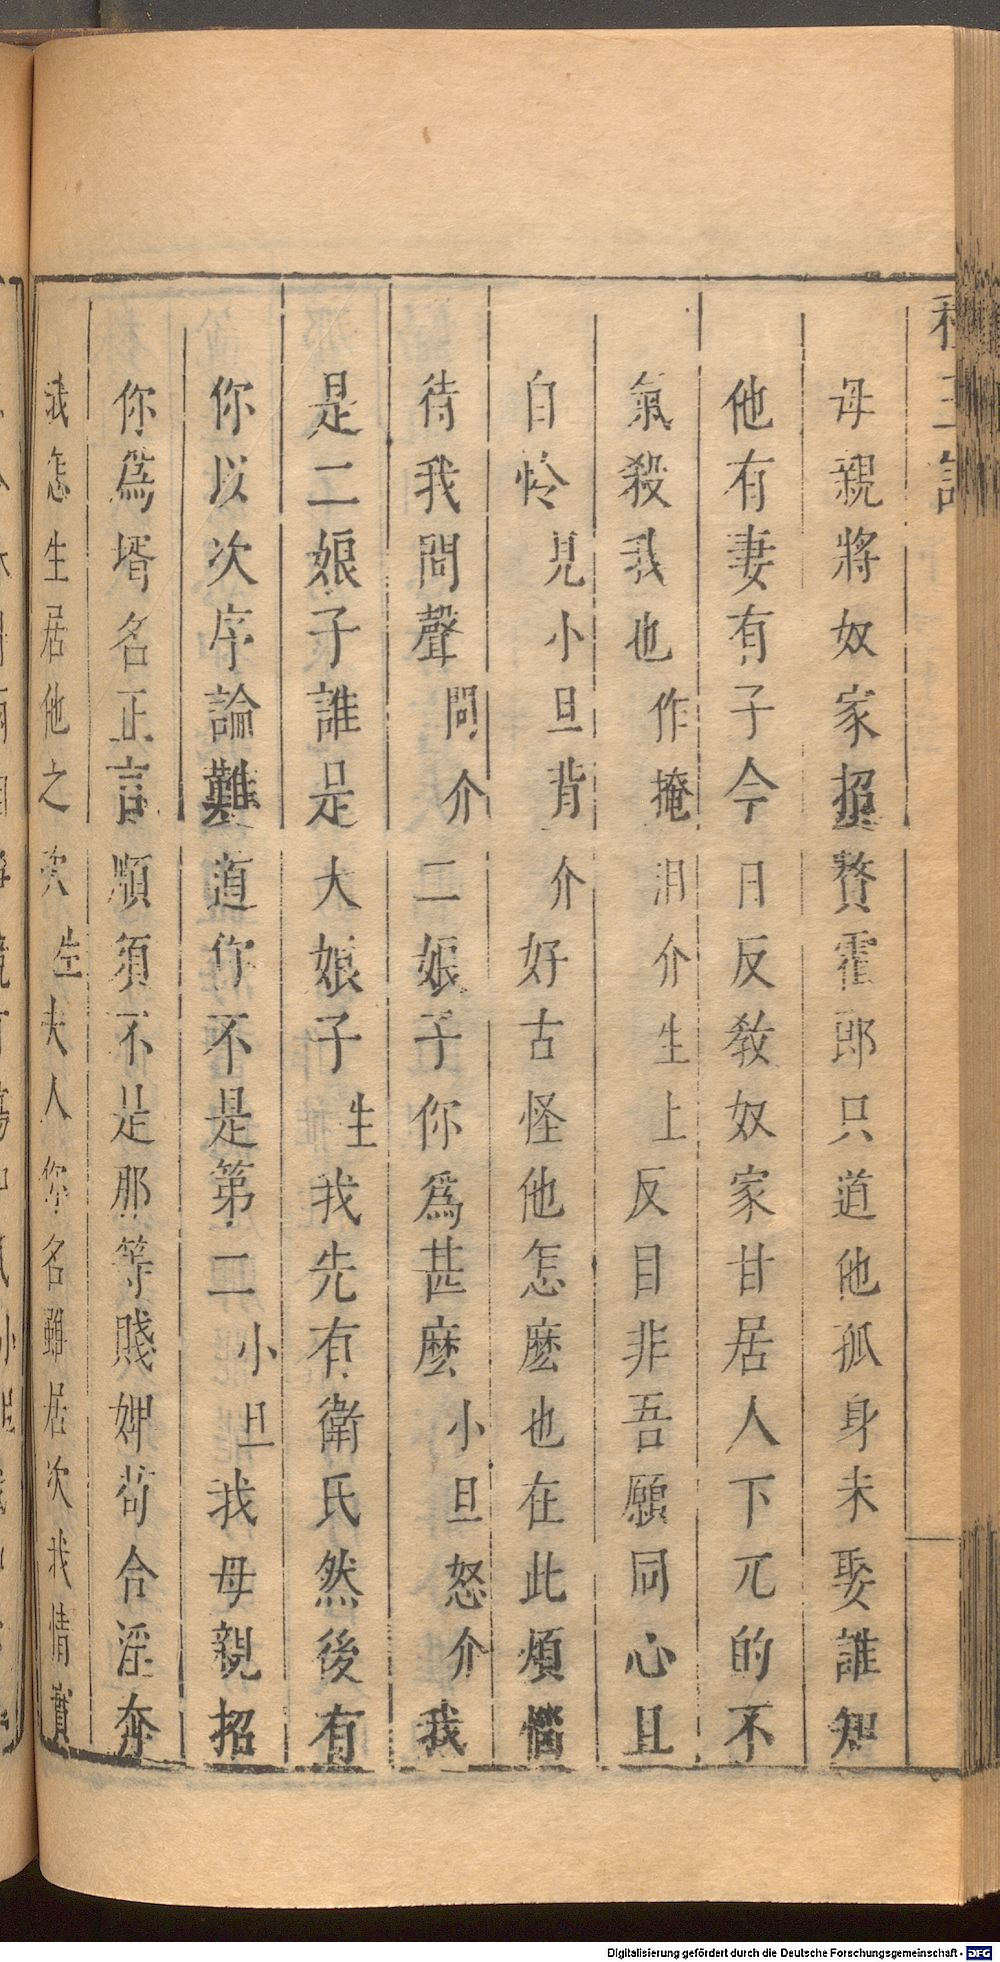 母親將奴家招贅霍郎只道他孤身未娶誰知
他有妻有子今日反教奴家甘居人下兀的不
氣殺我也作掩泪介生上反目非吾願同心且
自怜見小旦背介好古怪他怎麽也在此煩惱
待我問聲問介二娘子你爲甚麽小旦怒介我
是二娘子誰是大娘子生我先有衛氏然後有
你以次序論難道你不是第二小旦我母親招
你爲壻名正言順須不是那等賤婢苟合淫奔
我怎生居他之次生夫人你名雖居次我情實
Digitalisierung gefördert durch die Deutsche Forschungsgemeinschaft - DFG